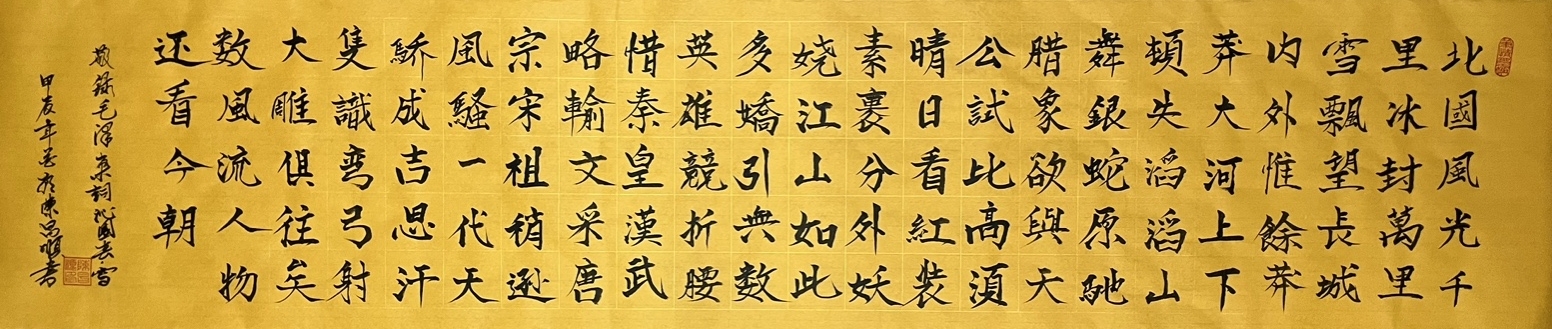 北國風光千
里冰封萬里
雪飄望長城
内外惟餘莽
莽大河上下
頓失滔滔山
舞銀蛇原馳
腊象欲與天
公試比高須
晴日看紅裝
素裹分外妖
娆江山如此
多嬌引無数
英雄競折腰
惜秦皇漢武
略輸文采唐
宗宋祖稍遜
風騷一代天
驕成吉思汗
隻識弯弓射
大雕俱往矣
数風流人物
还看今朝
敬録毛澤東詞沁園春雪
甲辰年